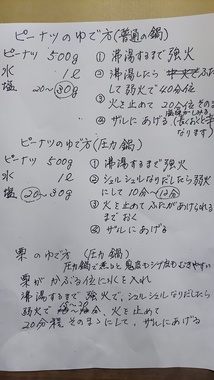 ピーナツのゆで方(普通の鍋)
ピーナツ 500g ① 沸騰するまで強火
水 1ℓ ② 沸騰したら ふた
塩 20~30g して弱火で40分位
③ 火を止めて 20分位そのまま
④ ザルにあげる (長くおくと辛く
なります)
ピーナツのゆで方 (圧力鍋)
ピーナツ 500g ① 沸騰するまで強火
水 1ℓ ② シュルシュルなりだしたら弱火
塩 20~30g にして 10分~12分
③ 火を止めてふたがあけられる
までおく
④ ザルにあげる
栗のゆで方 (圧力鍋)
圧力鍋で煮ると 鬼皮もシブ皮もむきやすい
栗がかぶる位に水を入れ
沸騰するまで強火で、シュルシュルなりだしたら
弱火で 火を止めて
20分程そのままにして、ザルにあげる